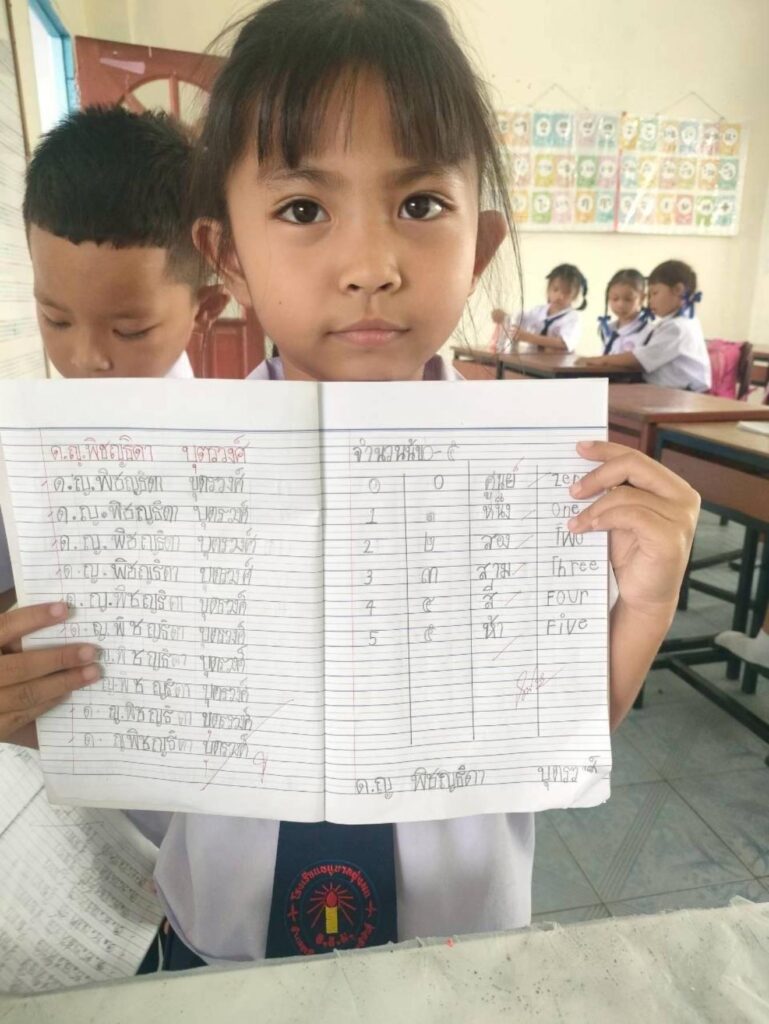 ด.ญ.พิชญธิดา บุตรวงศ์
ด.ญ.พิชญธิดา บุตรวงศ์
ด.ญ.พิชญธิดา บุตรวงศ์
ด.ญ.พิชญธิดา บุตรวงศ์
ด.ญ.พิชญธิดา บุตรวงศ์
ด.ญ.พิชญธิดา บุตรวงศ์
ด.ญ.พิชญธิดา บุตรวงศ์
ญ.พิชญธิดา บุตรวงศ์
ญ.พิชญธิดา บุตรวงศ์
ด.ญ.พิชญธิดา บุตรวงศ์
ด.ญพิชญธิดา บุตรวงศ์
จำนวนนับ ๐-๕
0 ๐ ศูนย์ zer
1 ๑ หนึ่ง one
2 ๒ สอง Two
3 ๓ สาม Three
4 ๔ สี่ Four
5 ๕ ห้า Five
ด.ญ พิชญธิดา บุตรวงศ์